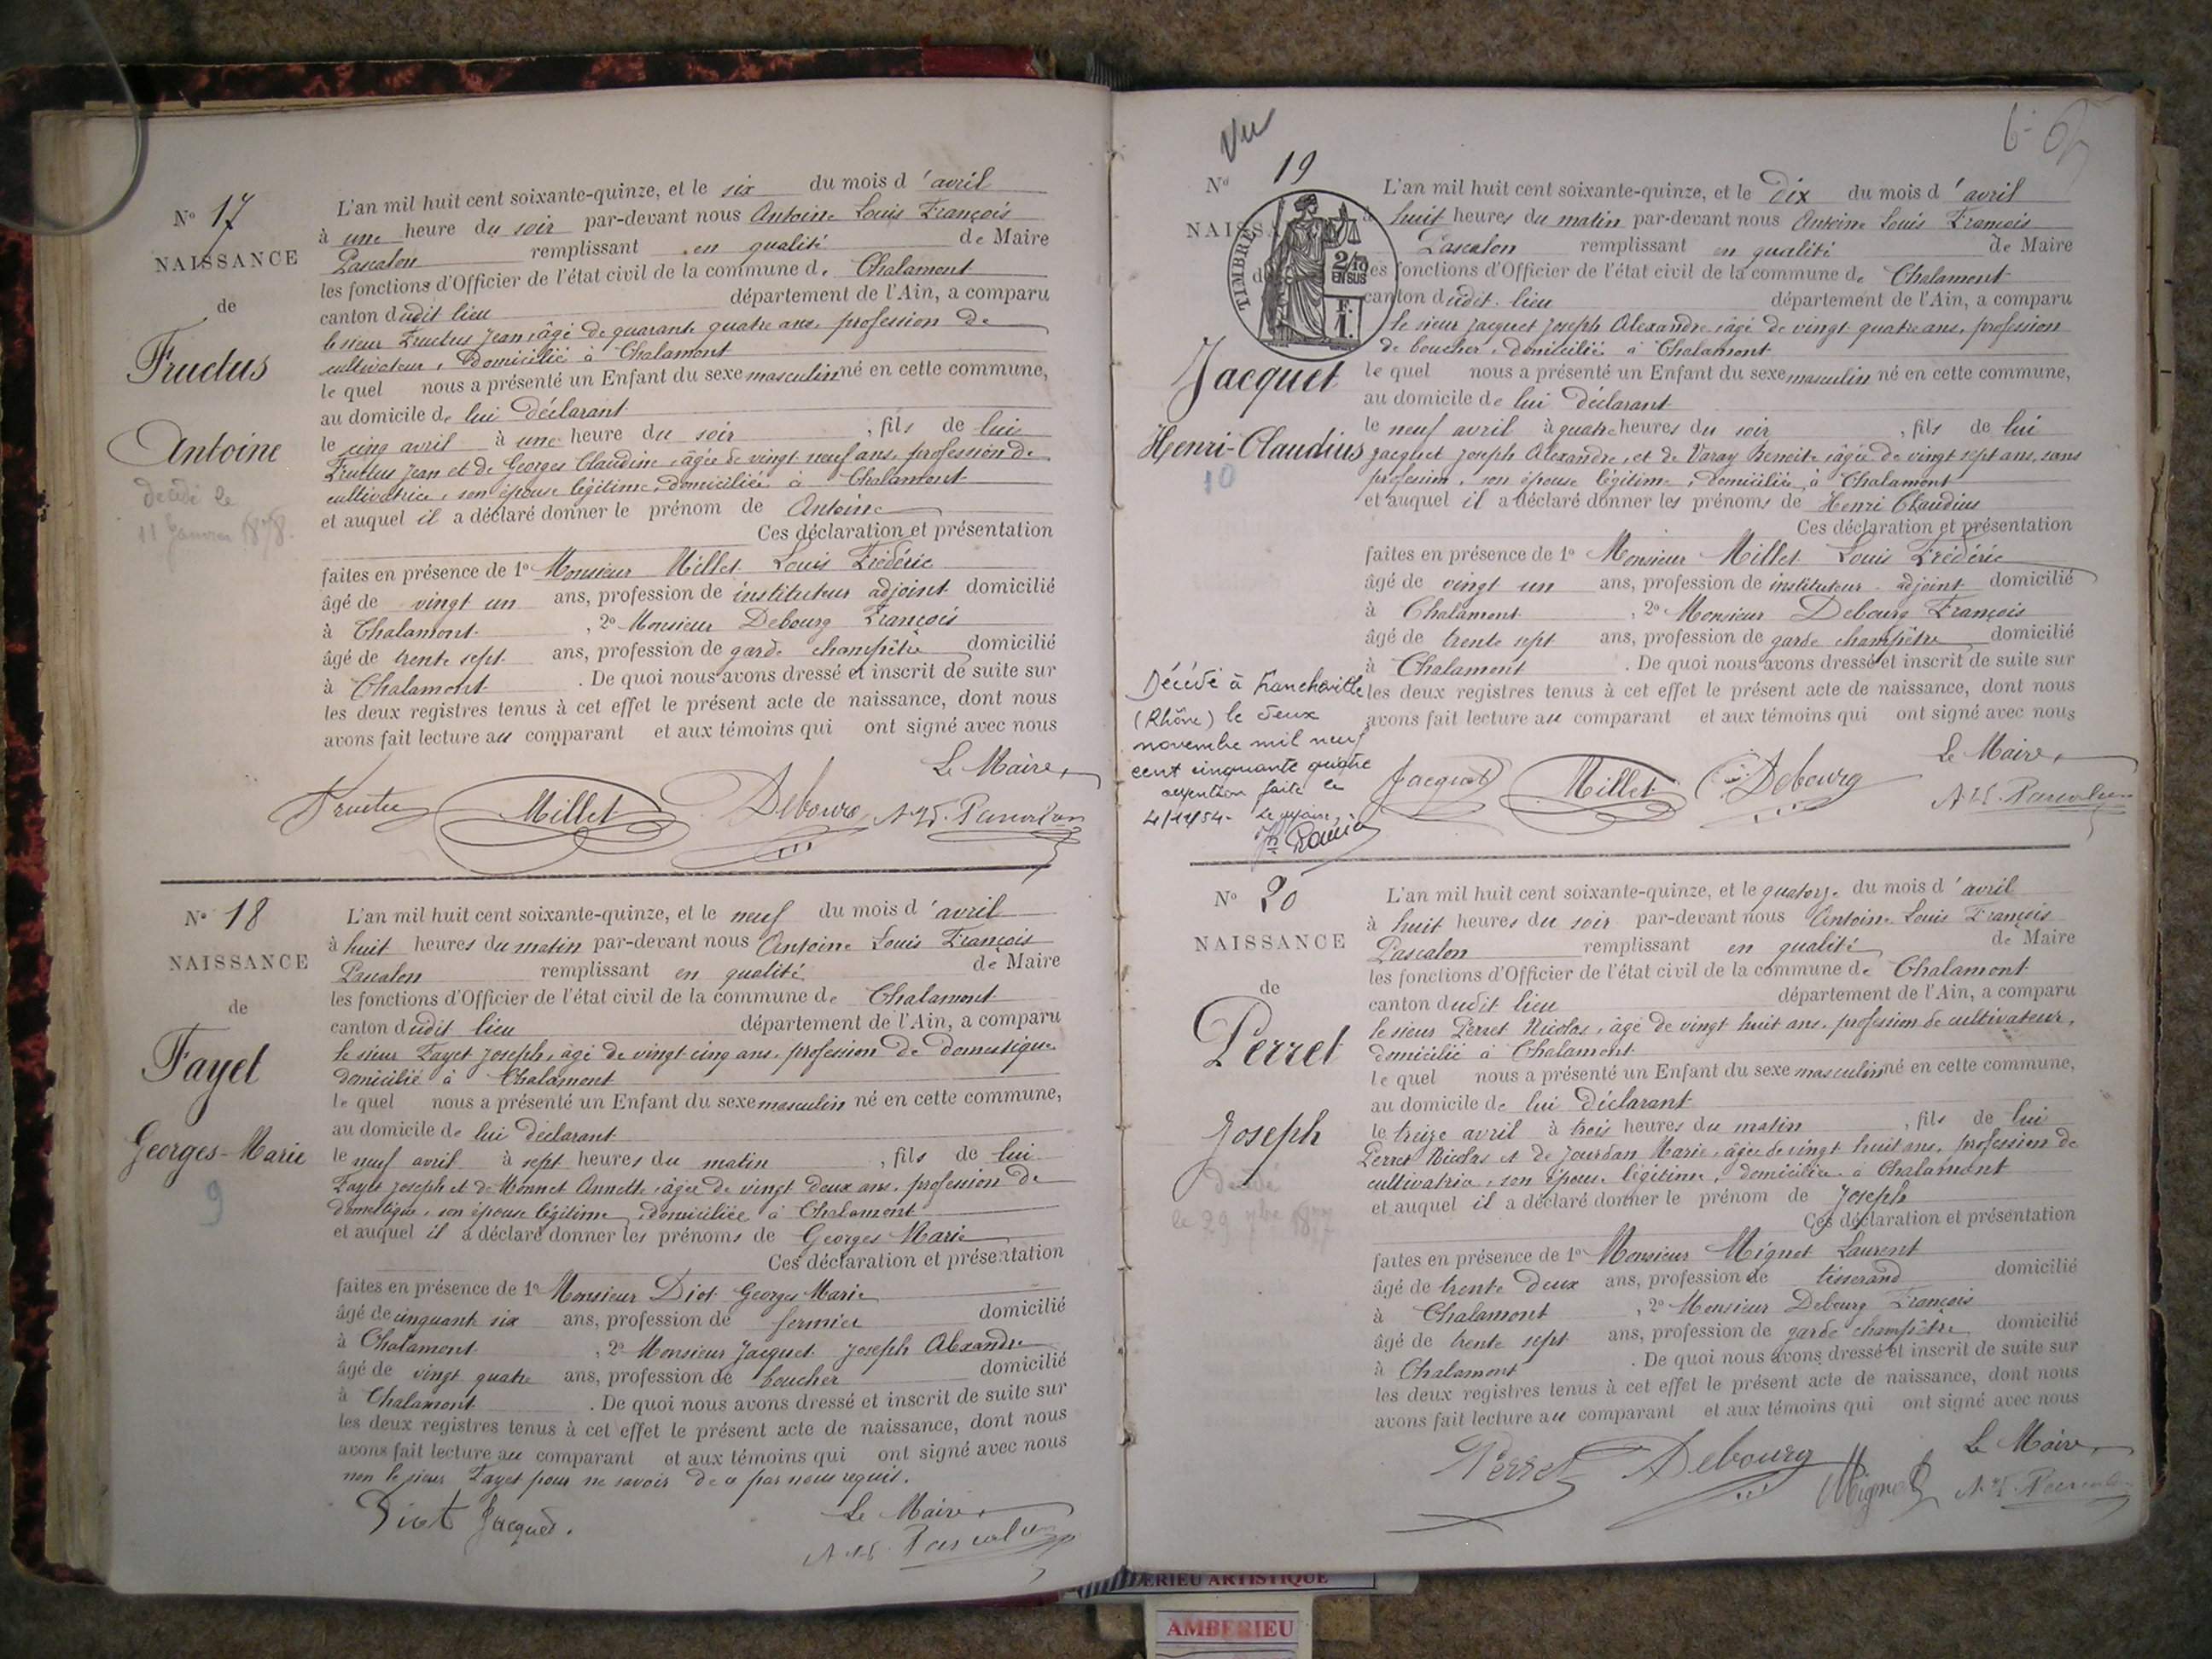 N° 17
NAISSANCE
de
Fructus
Antoine
décédé le
11 Janvier 1878.
L'an mil huit cent soixante-quinze, et le six du mois d'avril
à une heure du soir par-devant nous Antoine Louis François
Pascalon remplissant en qualité de Maire
les fonctions d'Officier de l'état civil de la commune de Chalamont
canton dudit lieu département de l'Ain, a comparu
le sieur Fructus Jean, âgé de quarante quatre ans, profession de
cultivateur, domicilié à Chalamont
le quel nous a présenté un Enfant du sexe masculin né en cette commune,
au domicile de lui déclarant
le cinq avril à une heure du soir, fils de lui
Fructus Jean et de Georges Claudine, âgée de vingt neuf ans, profession de
cultivatrice, son épouse légitime, domiciliée à Chalamont
et auquel il a déclaré donner le prénom de Antoine
Ces déclaration et présentation
faites en présence de 1° Monsieur Millet Louis Frédéric
âgé de vingt un ans, profession de instituteur adjoint domicilié
à Chalamont, 2° Monsieur Debourg François
âgé de trente sept ans, profession de garde champêtre domicilié
à Chalamont. De quoi nous avons dressé et inscrit de suite sur
les deux registres tenus à cet effet le présent acte de naissance, dont nous
avons fait lecture au comparant et aux témoins qui ont signé avec nous
Le Maire,
Fructus Millet Debourg A. L. F. Pascalon
N° 18
NAISSANCE
de
Fayet
Georges-Marie
9
L'an mil huit cent soixante-quinze, et le neuf du mois d'avril
à huit heures du matin par-devant nous Antoine Louis François
Pascalon remplissant en qualité de Maire
les fonctions d'Officier de l'état civil de la commune de Chalamont
canton dudit lieu département de l'Ain, a comparu
le sieur Fayet Joseph, âgé de vingt cinq ans, profession de domestique
domicilié à Chalamont
le quel nous a présenté un Enfant du sexe masculin né en cette commune,
au domicile de lui déclarant
le neuf avril à sept heures du matin, fils de lui
Fayet Joseph et de Monnet Annette, âgée de vingt deux ans, profession de
domestique, son épouse légitime, domiciliée à Chalamont
et auquel il a déclaré donner les prénoms de Georges Marie
Ces déclaration et présentation
faites en présence de 1° Monsieur Diot Georges Marie
âgé de cinquante six ans, profession de fermier domicilié
à Chalamont, 2° Monsieur Jacquet Joseph Alexandre
âgé de vingt quatre ans, profession de boucher domicilié
à Chalamont. De quoi nous avons dressé et inscrit de suite sur
les deux registres tenus à cet effet le présent acte de naissance, dont nous
avons fait lecture au comparant et aux témoins qui ont signé avec nous
non le sieur Fayet pour ne savoir de ce par nous requis.
Diot Jacquet.
Le Maire
A. L. F. Pascalon
Vu
N° 19
NAISSA
TIMBRE
2/10
EN SUS
Jacquet
Henri-Claudius
10
L'an mil huit cent soixante-quinze, et le dix du mois d'avril
à huit heures du matin par-devant nous Antoine Louis François
Pascalon remplissant en qualité de Maire
les fonctions d'Officier de l'état civil de la commune de Chalamont
canton dudit lieu département de l'Ain, a comparu
le sieur Jacquet Joseph Alexandre, âgé de vingt quatre ans, profession
de boucher, domicilié à Chalamont
le quel nous a présenté un Enfant du sexe masculin né en cette commune,
au domicile de lui déclarant
le neuf avril à quatre heures du soir, fils de lui
Jacquet Joseph Alexandre, et de Varay Benoite, âgée de vingt sept ans, sans
profession, son épouse légitime, domiciliée à Chalamont
et auquel il a déclaré donner les prénoms de Henri Claudius
Ces déclaration et présentation
faites en présence de 1° Monsieur Millet Louis Frédéric
âgé de vingt un ans, profession de instituteur adjoint domicilié
à Chalamont, 2° Monsieur Debourg François
âgé de trente sept ans, profession de garde champêtre domicilié
à Chalamont. De quoi nous avons dressé et inscrit de suite sur
les deux registres tenus à cet effet le présent acte de naissance, dont nous
avons fait lecture au comparant et aux témoins qui ont signé avec nous
Décédé à Francheville
(Rhône) le deux
novembre mil neuf
cent cinquante quatre
mention faite le
4/11/54- Le Maire,
Le Maire,
Jacquet Millet Debourg A. L. F. Pascalon
N° 20
NAISSANCE
de
Perret
Joseph
décédé
le 29 7bre 1877
L'an mil huit cent soixante-quinze, et le quatorze du mois d'avril
à huit heures du soir par-devant nous Antoine Louis François
Pascalon remplissant en qualité de Maire
les fonctions d'Officier de l'état civil de la commune de Chalamont
canton dudit lieu département de l'Ain, a comparu
le sieur Perret Nicolas, âgé de vingt huit ans, profession de cultivateur,
domicilié à Chalamont
le quel nous a présenté un Enfant du sexe masculin né en cette commune,
au domicile de lui déclarant
le treize avril à trois heures du matin, fils de lui
Perret Nicolas et de Jourdan Marie, âgée de vingt huit ans, profession de
cultivatrice, son épouse légitime, domiciliée à Chalamont
et auquel il a déclaré donner le prénom de Joseph
Ces déclaration et présentation
faites en présence de 1° Monsieur Mignet Laurent
âgé de trente deux ans, profession de tisserand domicilié
à Chalamont, 2° Monsieur Debourg François
âgé de trente sept ans, profession de garde champêtre domicilié
à Chalamont. De quoi nous avons dressé et inscrit de suite sur
les deux registres tenus à cet effet le présent acte de naissance, dont nous
avons fait lecture au comparant et aux témoins qui ont signé avec nous
Le Maire,
Perret Debourg Mignet A. L. F. Pascalon
ERIEU ARTISTIQUE
AMBERIEU